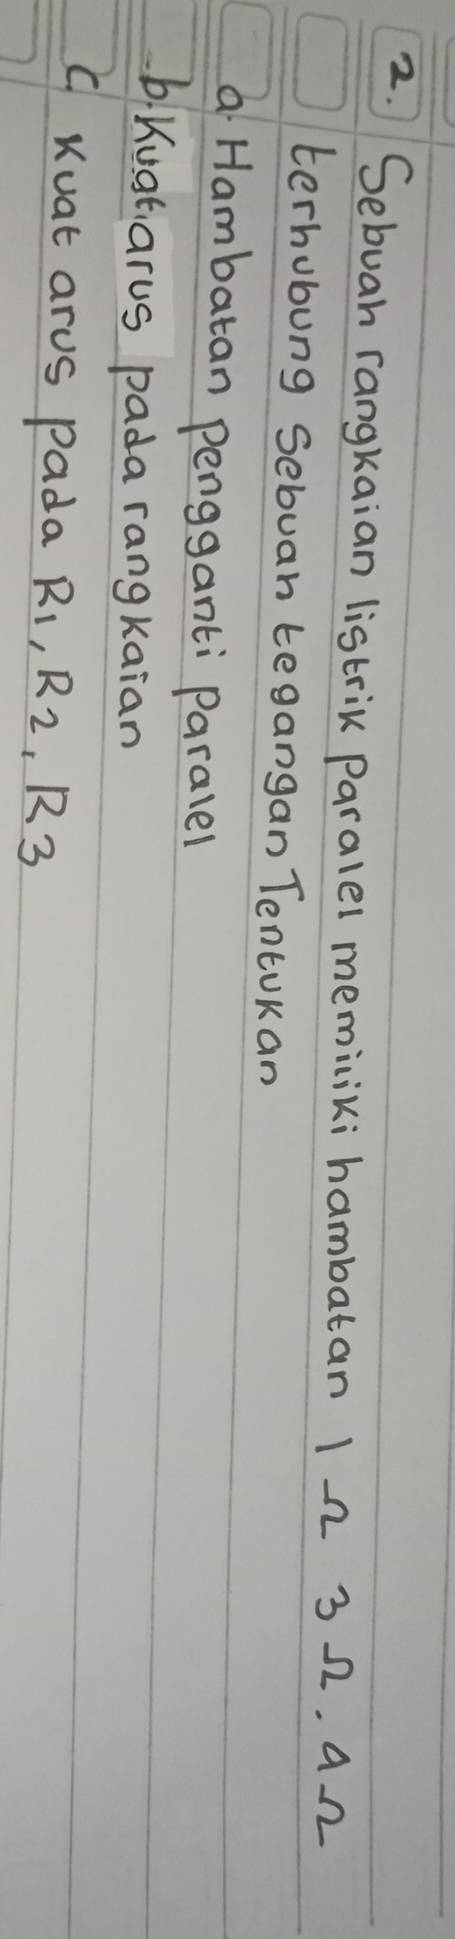 2. Sebuah rangkaian listrik Paralel memiliki hambatan 1 Ω 3 Ω. 4 Ω
terhubung Sebuah tegangan Tentukan
a. Hambatan Pengganti Paralel
b. Kuat arus pada rangkaian
C. Kuat arus Pada R1, R2, R3